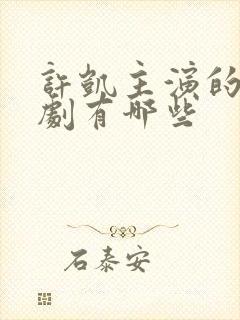 許凱主演的
劇有哪些
石泰安